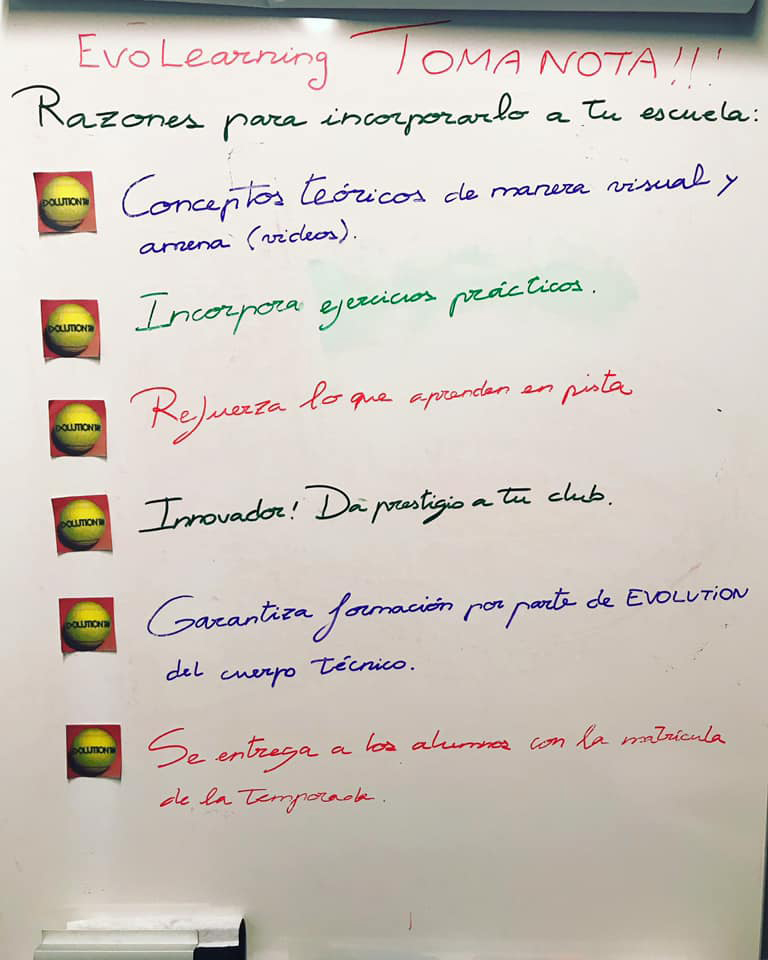 EvoLearning TOMA NOTA!!!
Razones para incorporarlo a tu escuela:
OLUTION
Conceptos teóricos de manera visual y
amena (videos).
OLUTION
Incorpora ejercicios prácticos.
OLUTION
Refuerza lo que aprenden en pista
OLUTION
Innovador! Da prestigio a tu club.
OLUTION
Garantiza formación por parte de EVOLUTION
del cuerpo técnico.
OLUTION
Se entrega a los alumnos con la matrícula
de la temporada.